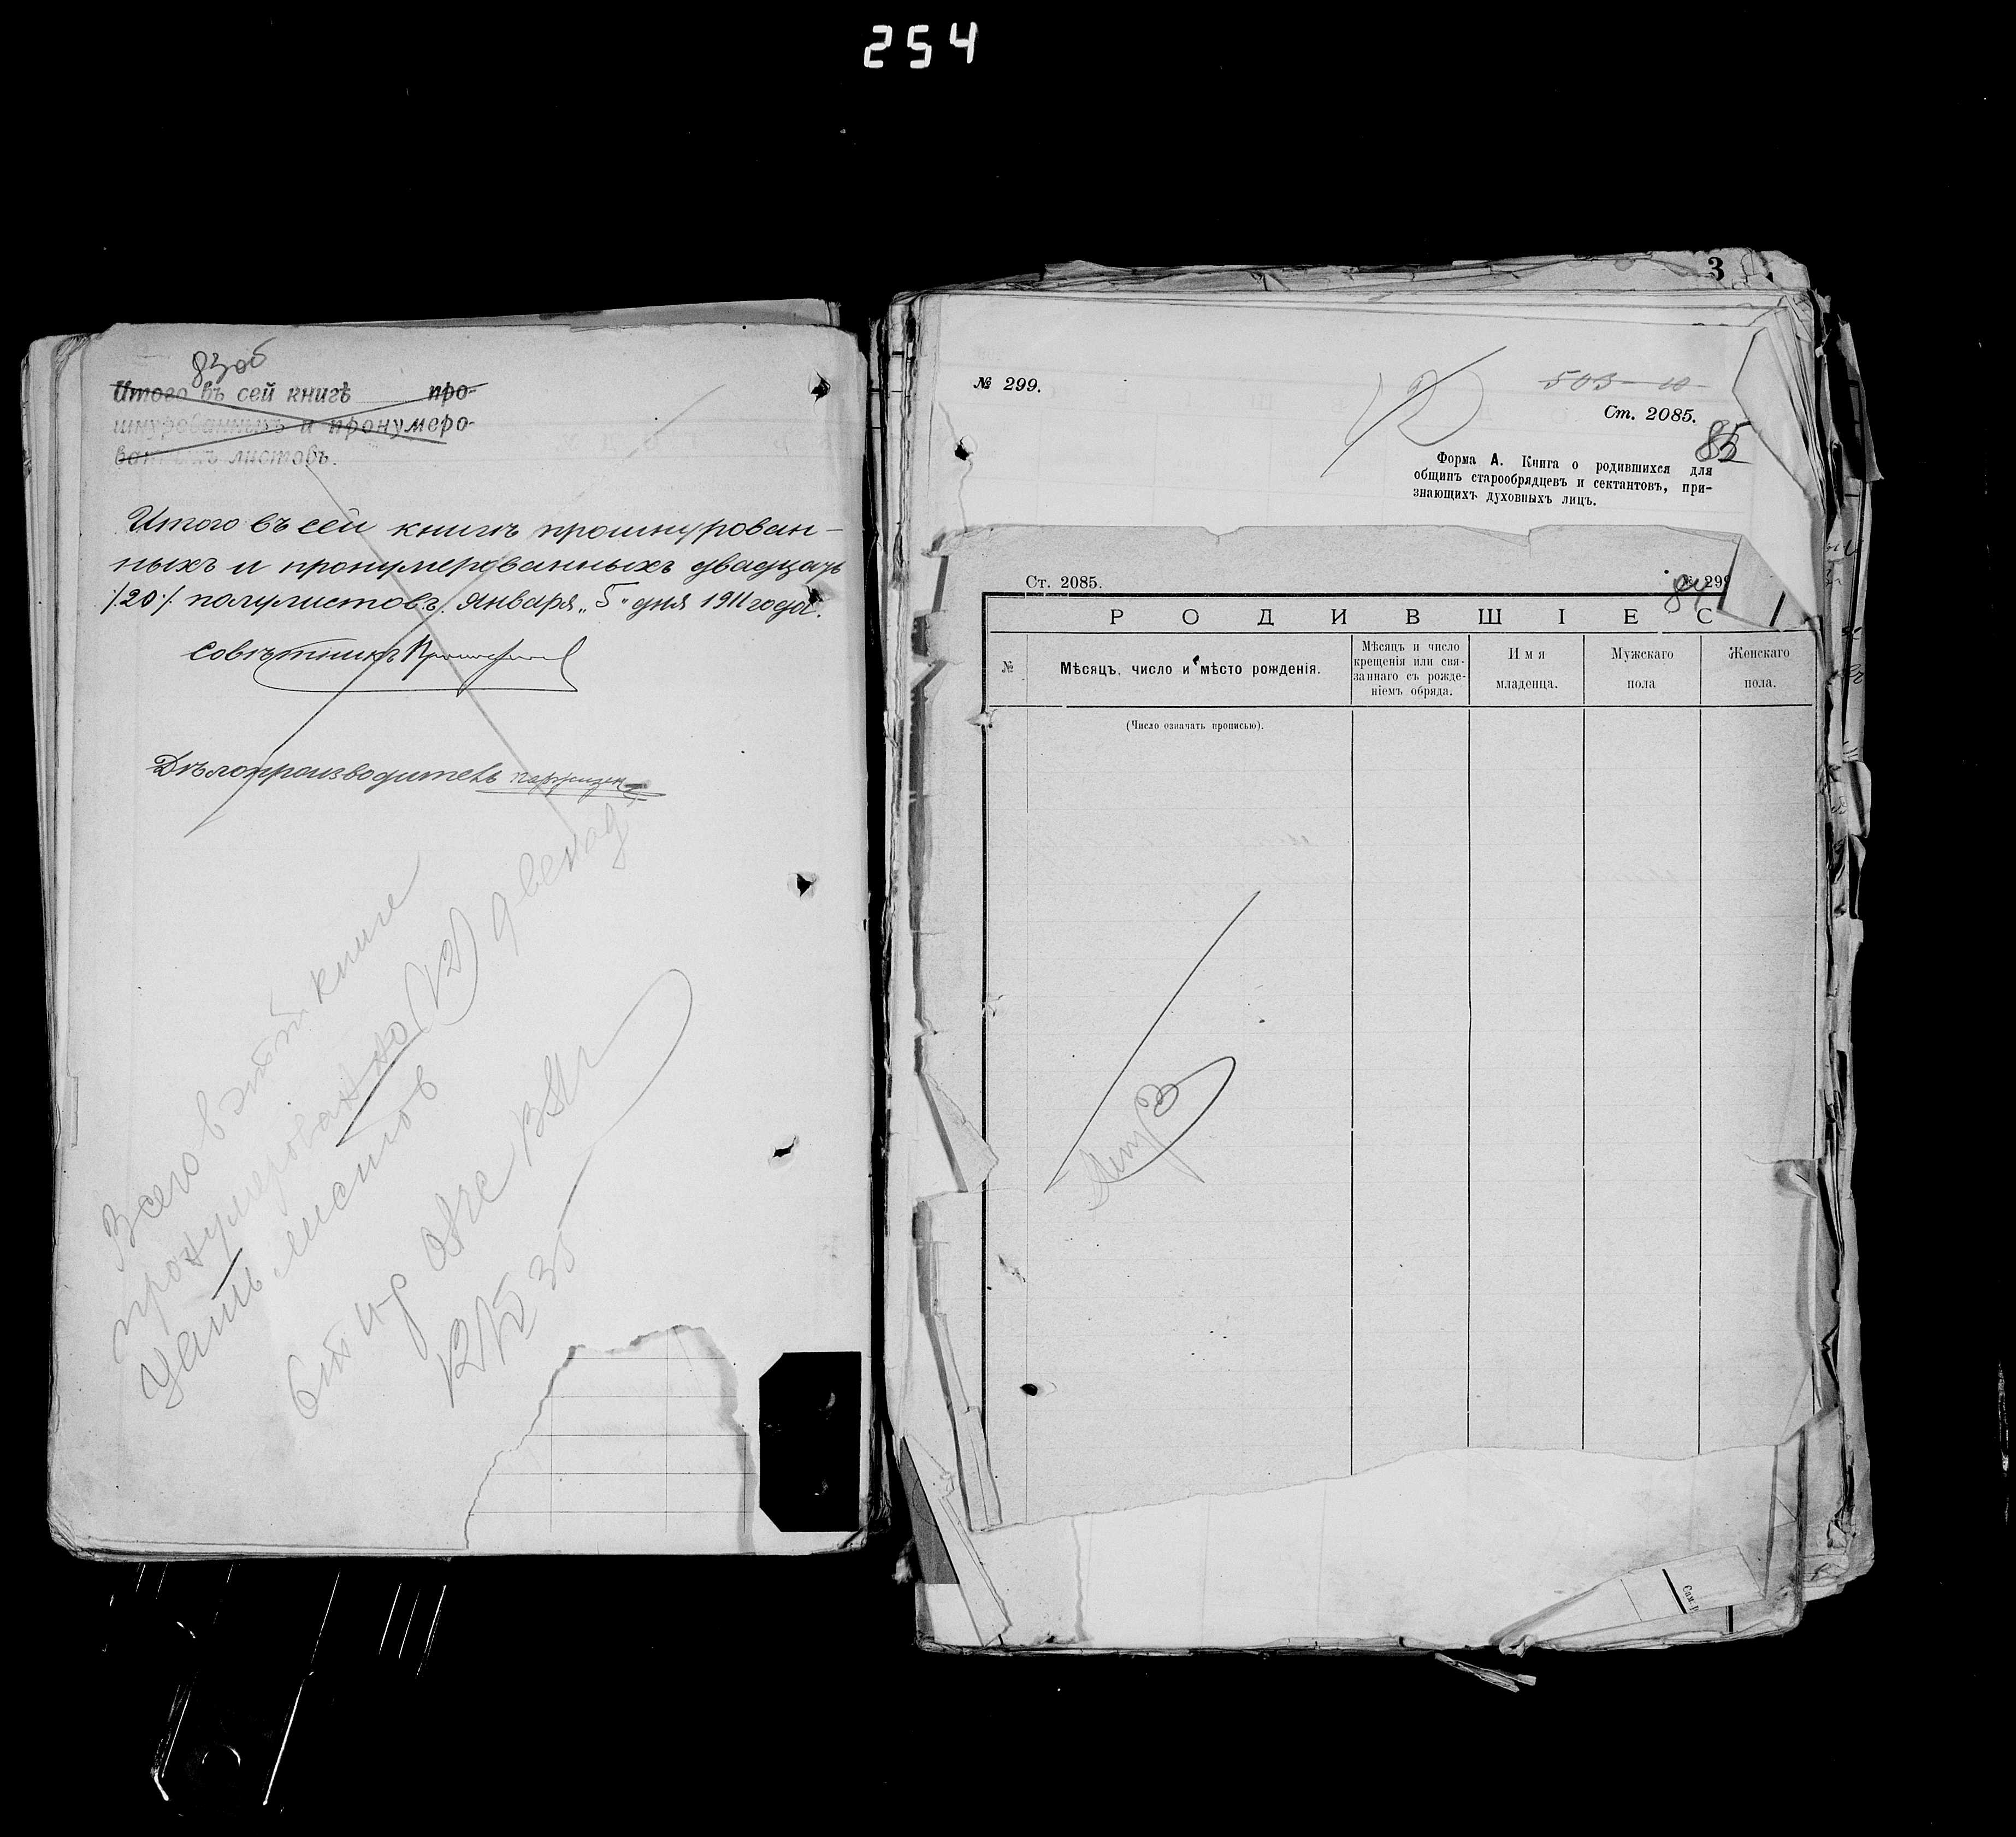 254
83об
Итого въ сей книгѣ про-
шнурованныхъ и пронумеро-
ванныхъ листовъ.
Итого въ сей книгѣ прошнурован-
ныхъ и пронумерованныхъ двадцать
/20/ полулистовъ. Января „5" дня 1911 года.
Совѣтникъ
Дѣлопроизводитель
Всего в этой книге
пронумеровано (12) двенад
цать листов
12/V 35
3
№ 299.
503-10
Ст. 2085.
85
Форма А. Книга о родившихся для
общинъ старообрядцевъ и сектантовъ, при-
знающихъ духовныхъ лицъ.
Ст. 2085. № 299
84
РОДИВШІЕС
№
Мѣсяцъ, число и мѣсто рожденія.
Мѣсяцъ и число
крещенія или свя-
заннаго съ рожде-
ніемъ обряда.
Имя
младенца.
Мужскаго
пола
Женскаго
пола.
(Число означать прописью).